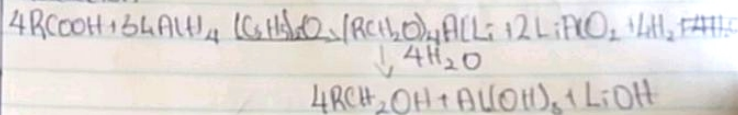 4RCOOH + 3LiAlH₄ (C₂H₅)₂O → (RCH₂O)₄AlLi + 2LiAlO₂ + 4H₂
↓ 4H₂O
4RCH₂OH + Al(OH)₃ + LiOH